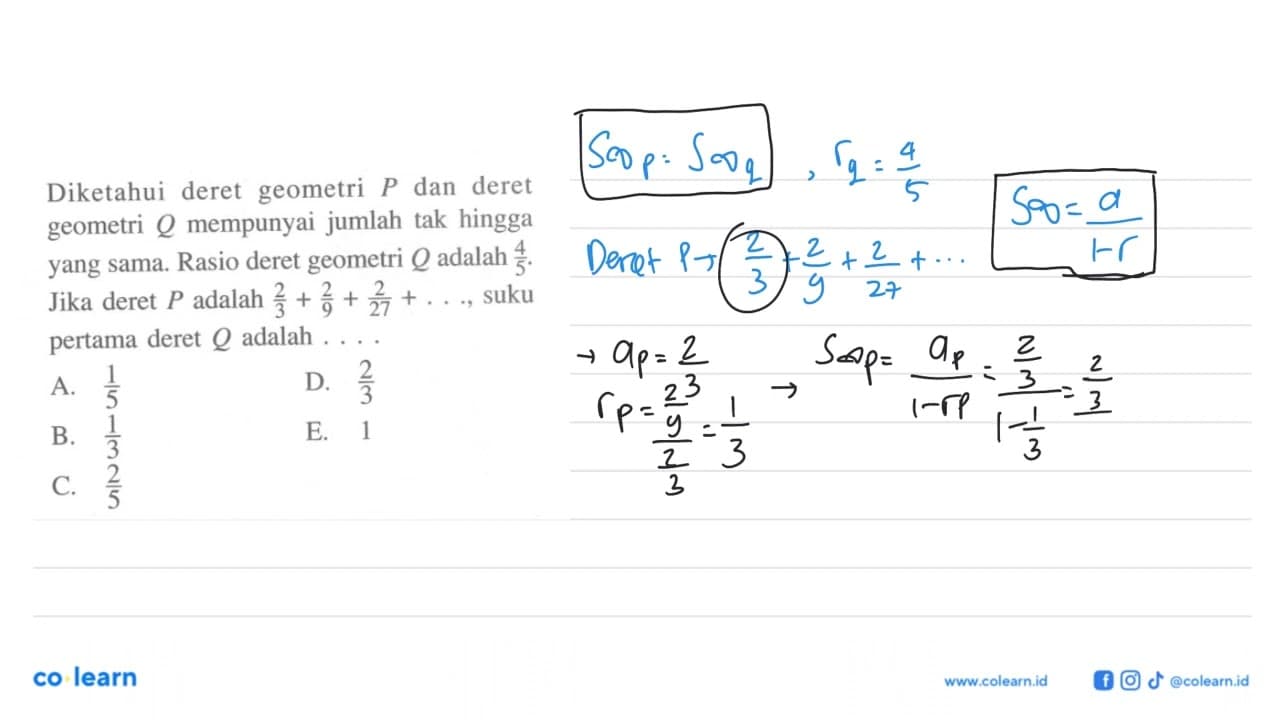 Diketahui deret geometri P dan deret
geometri Q mempunyai jumlah tak hingga
yang sama. Rasio deret geometri Q adalah 4/5.
Jika deret P adalah 2/3 + 2/9 + 2/27 + . . ., suku
pertama deret Q adalah . . . .
A. 1/5
D. 2/3
B. 1/3
E. 1
C. 2/5
S∞p = S∞q , rq = 4/5
S∞ = a/1-r
Deret P → 2/3 + 2/9 + 2/27 + ...
→ ap = 2/3
rp = 2/9 / 2/3 = 1/3
→ S∞p = ap/1-rp = 2/3 / 1-1/3 = 2/3
co learn
www.colearn.id
@colearn.id